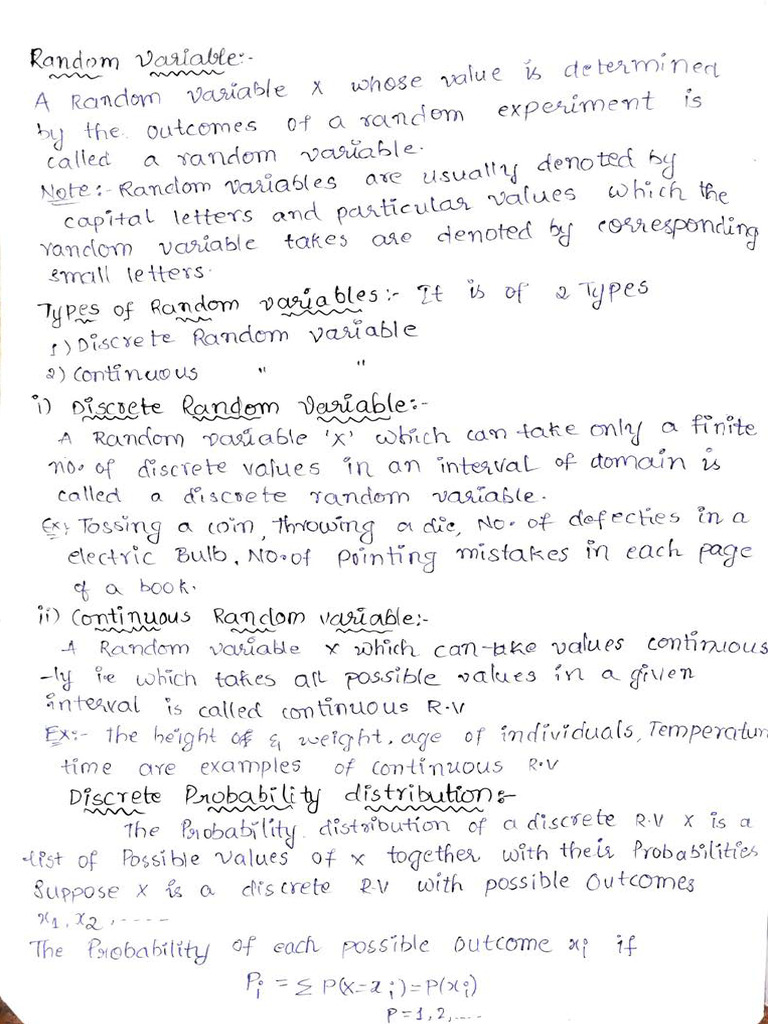 Random Variable:-
A Random variable X whose value is determined
by the outcomes of a random experiment is
called a random variable.
Note:- Random variables are usually denoted by
capital letters and particular values which the
random variable takes are denoted by corresponding
small letters.
Types of Random variables:- It is of 2 Types
1) Discrete Random variable
2) Continuous " "
i) Discrete Random Variable:-
A Random variable 'X' which can take only a finite
no. of discrete values in an interval of domain is
called a discrete random variable.
Ex: Tossing a coin, Throwing a die, No. of defecties in a
electric Bulb, No. of Pointing mistakes in each page
of a book.
ii) Continuous Random variable:-
A Random variable X which can take values continuous
-ly i.e which takes all possible values in a given
interval is called continuous R.V
Ex:- The height of & weight, age of individuals, Temperatur
time are examples of continuous R.V
Discrete Probability distribution:-
The Probability distribution of a discrete R.V X is a
list of Possible values of X together with their Probabilities
Suppose X is a discrete R.V with possible Outcomes
x₁, x₂, ----
The Probability of each possible outcome xᵢ if
Pᵢ = Σ P(X=xᵢ) = P(xᵢ)
P=1,2,....